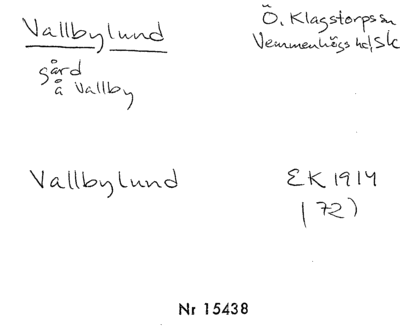 Vallbylund
Ö. Klagstorps sn
Vemmenhögs hd/Sk
gård
å Vallby
Vallbylund
EK 1914
(72)
Nr 15438